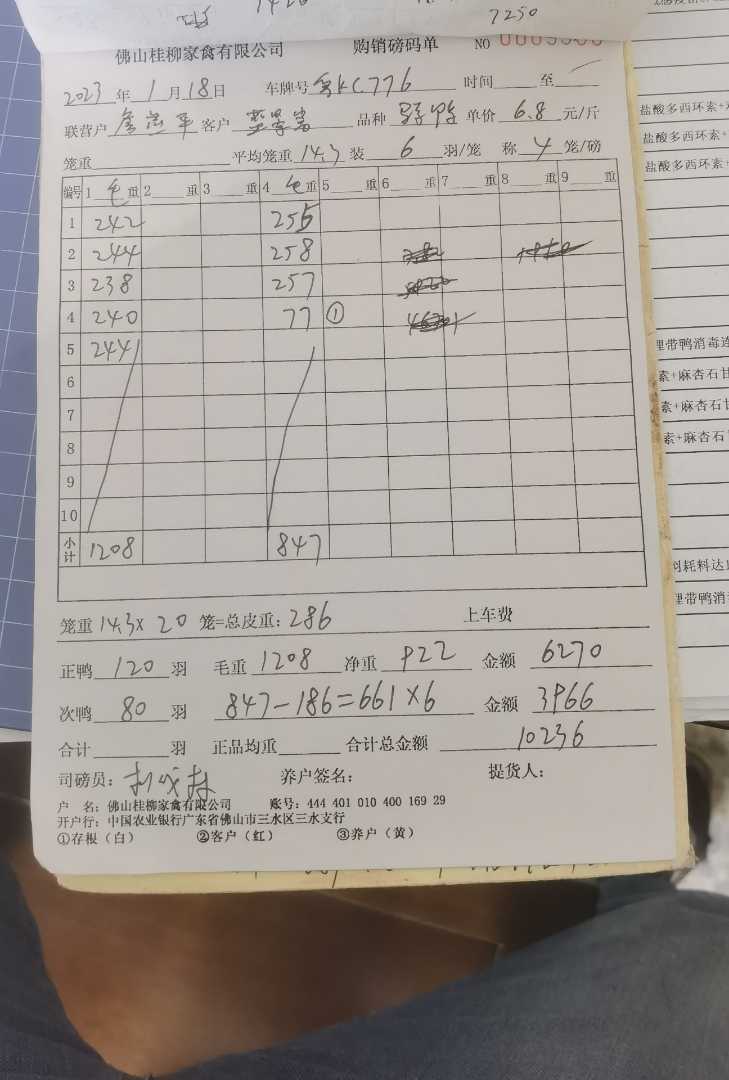 7250
佛山桂柳家禽有限公司 购销磅码单 NO
2023年1月18日 车牌号 粤KC.776 时间 至
联营户 客户 品种 单价 6.8 元/斤
笼重 平均笼重 14.3 装 6 羽/笼 称 4 笼/磅
编号 1 毛重 2 重 3 重 4 毛重 5 重 6 重 7 重 8 重 9 重
1 242 255
2 244 258
3 238 257
4 240 77 ①
5 244
6
7
8
9
10
小计 1208 847
笼重 14.3 x 20 笼=总皮重: 286 上车费
正鸭 120 羽 毛重 1208 净重 922 金额 6270
次鸭 80 羽 847-186=661×6 金额 3966
合计 羽 正品均重 合计总金额 10236
司磅员: 养户签名: 提货人:
户 名: 佛山桂柳家禽有限公司 账号: 444 401 010 400 169 29
开户行: 中国农业银行广东省佛山市三水区三水支行
①存根(白) ②客户(红) ③养户(黄)
盐酸多西环素+
盐酸多西环素+
盐酸多西环素+
带鸭消毒
素+麻杏石甘
素+麻杏石甘
素+麻杏石
耗料达
带鸭消